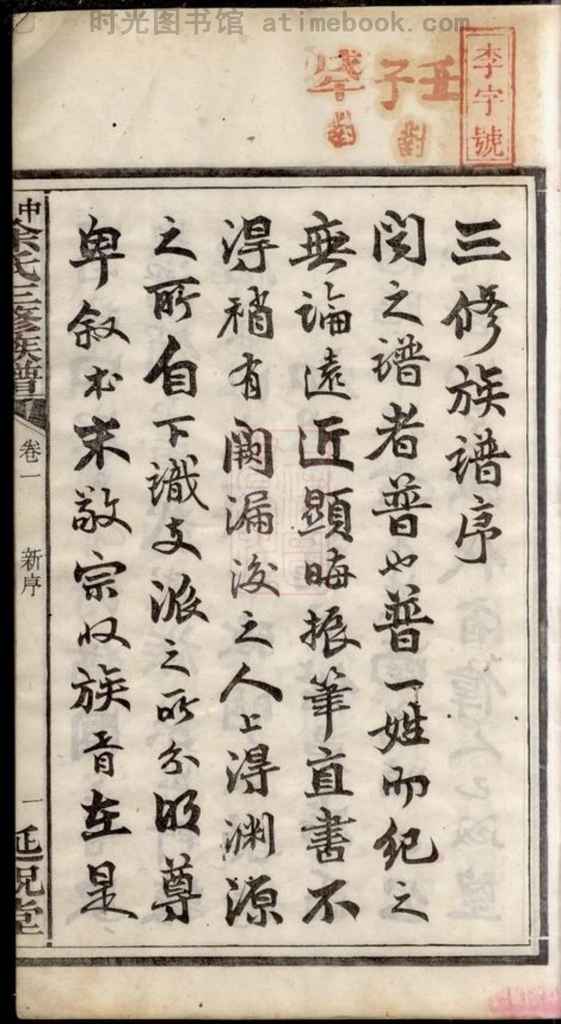 时光图书馆 atimebook.com
李字號
壬子
對
對
三修族谱序
闵之谱者普也普一姓而纪之
無論遠近顯晦振筆直書不
得稍有阙漏後之人上得渊源
之所自下識支派之所分昭尊
卑叙本末敬宗收族胥在是
余氏三修族譜
卷一
新序
一